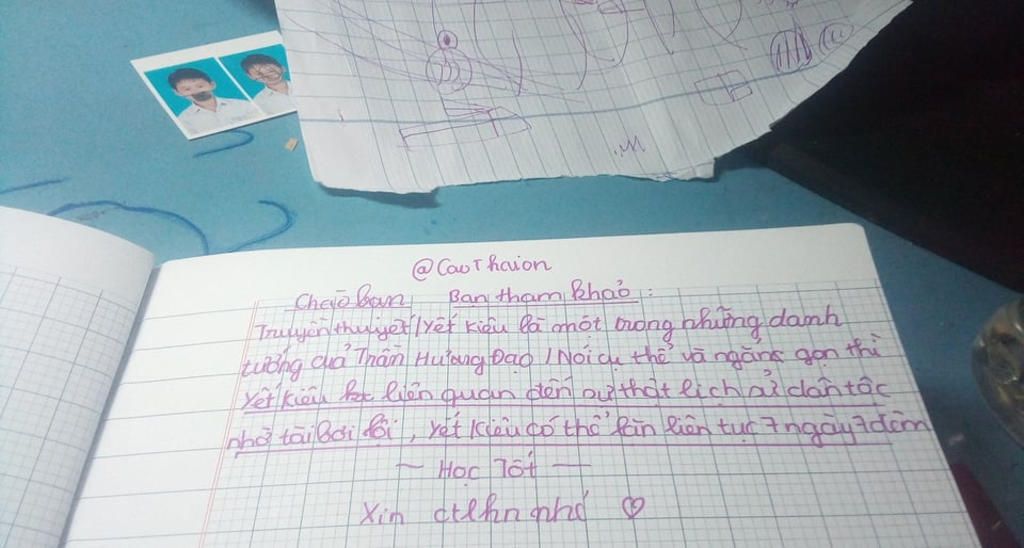 @CaoThaion
Chào bạn Bạn tham khảo :
Truyền thuyết / Yết Kiêu là một trong những danh
tướng của Trần Hưng Đạo / Nói cụ thể và ngắng gọn thì
Yết Kiêu liên quan đến sự thật lịch sử dân tộc
nhờ tài bơi lội, Yết Kiêu có thể lặn liên tục 7 ngày 7 đêm
— Học Tốt —
Xin ctlhn nhé ♡